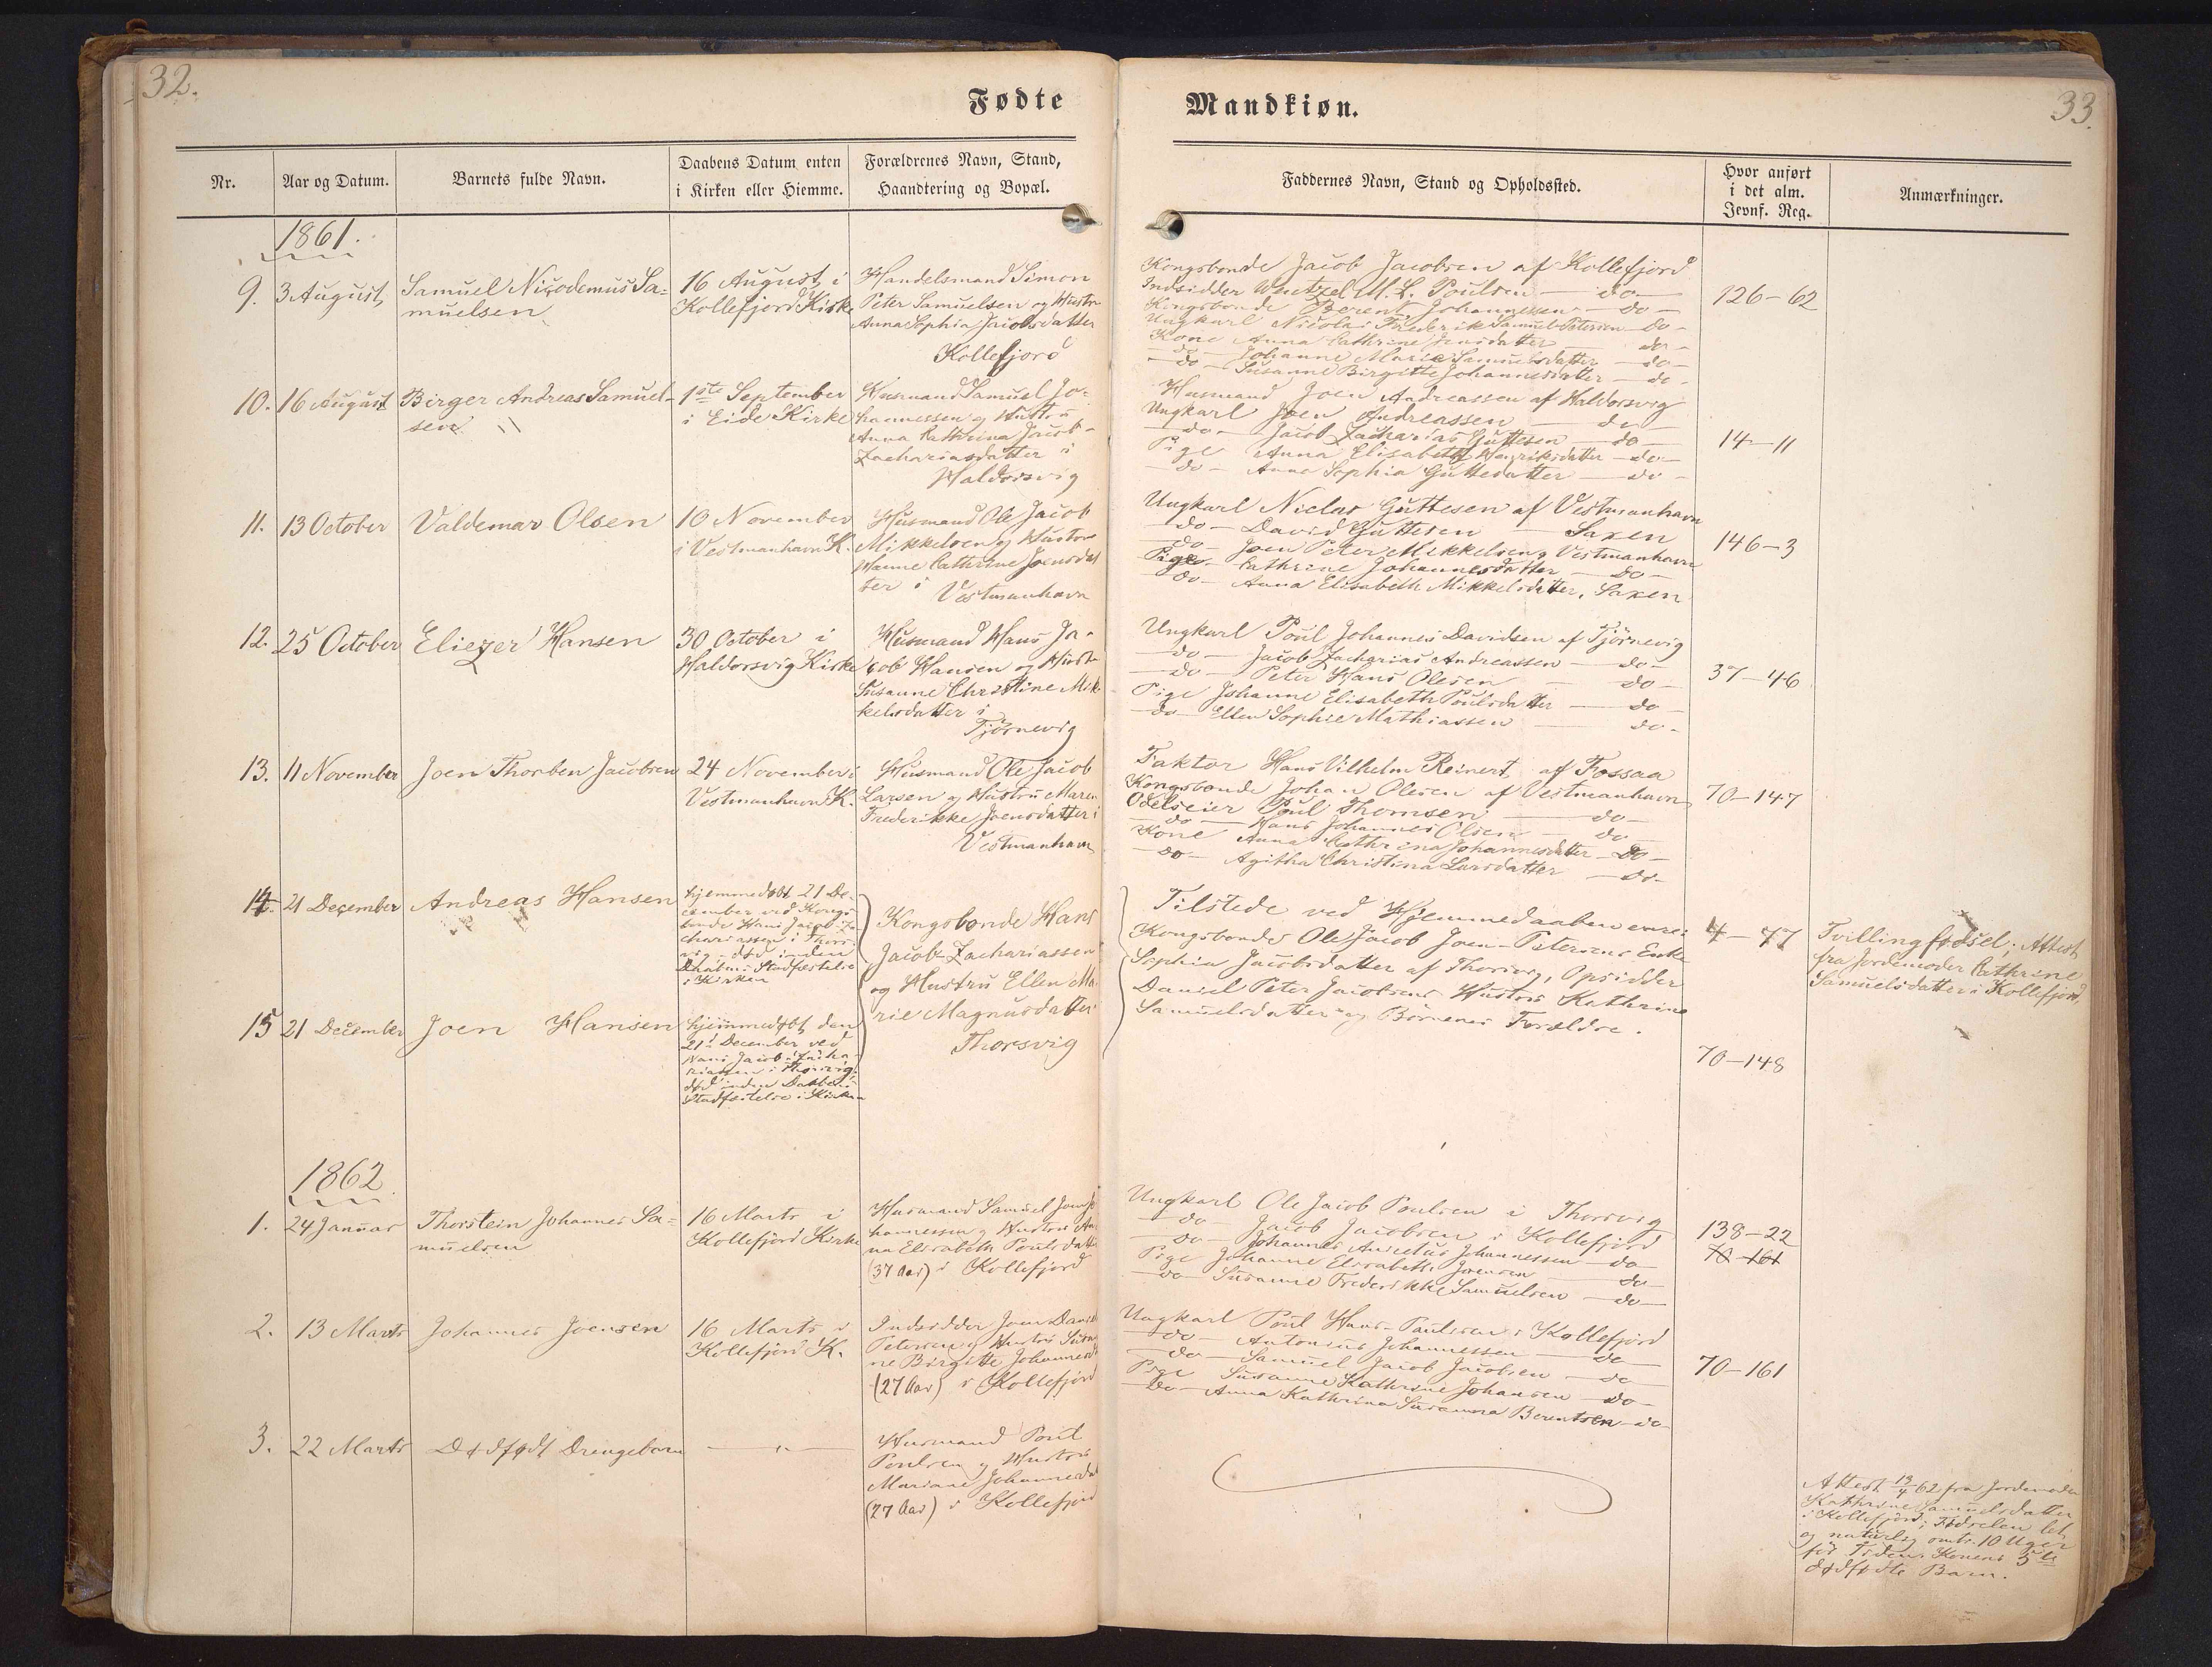 32.
Fødte
Nr.
Aar og Datum.
Barnets fulde Navn.
Daabens Datum enten
i Kirken eller Hiemme.
Forældrenes Navn, Stand,
Haandtering og Bopæl.
1861.
9.
3 August
Samuel Nicodemus Sa=
muelsen
16 August i
Kollefjord Kirke
Handelsmand Simon
Peter Samuelsen og Hustru
Anna Sophia Jacobsdatter
Kollefjord
10.
16 August
Birger Andreas Samuel-
sen
1ste September
i Eide Kirke
Husmand Samuel Jo-
hannessen og Hustru
Anna Kathrina Jacob-
Zachariasdatter i
Haldorsvig
11.
13 October
Valdemar Olsen
10 November
i Vestmanhavn K.
Husmand Ole Jacob
Mikkelsen og Hustru
Hanne Cathrine Joensdat
ter i
Vestmanhavn
12.
25 October
Eliezer Hansen
30 October i
Haldorsvig Kirke
Husmand Hans Ja-
cob Hansen og Hustru
Susanne Christine Mik
kelsdatter i
Tjørnevig
13.
11 November
Joen Thorben Jacobsen
24 November i
Vestmanhavn K.
Husmand Ole Jacob
Larsen og Hustru Maren
Frederikke Joensdatter i
Vestmanhavn
14.
21 December
Andreas Hansen
hjemmedøbt 21 De-
cember ved Kongs-
bonde Hans Jacob Za
chariassen i Thors-
vig - død inden
Daabens Stadfæstelse
i Kirken
Kongsbonde Hans
Jacob Zachariassen
og Hustru Ellen Ma-
rie Magnusdatter
Thorsvig
15
21 December
Joen Hansen
hjemmedøbt den
21 December ved
Hans Jacob Zacha-
riassen i Thorsvig,
død inden Daabens
Stadfæstelse i Kirken
1862.
1.
24 Januar
Thorstein Johannes Sa=
muelsen
16 Marts i
Kollefjord Kirke
Husmand Samuel Joen Jo
hannessen og Hustru An
na Elisabeth Poulsdatter
(37 Aar) i Kollefjord
2.
13 Marts
Johannes Joensen
16 Marts i
Kollefjord K.
Indsidder Joen Daniel
Petersen og Hustru Susan
ne Birgitte Johannesd
(27 Aar) i Kollefjord
3.
22 Marts
Dødfødt Drengebarn
— " —
Husmand Poul
Poulsen og Hustru
Mariane Johannesdat
(27 Aar) i Kollefjord
Mandkiøn.
33.
Faddernes Navn, Stand og Opholdssted.
Hvor anført
i det alm.
Jevnf. Reg.
Anmærkninger.
Kongsbonde Jacob Jacobsen af Kollefjord
Indsidder Wentzel M. L. Poulsen — do —
Kongsbonde Berent Johannessen — do —
Ungkarl Nicolai Frederik Samuel Petersen — do —
Kone Anna Cathrine Jensdatter — do —
— do — Johanne Marie Samuelsdatter — do —
— do — Susanne Birgitte Johannesdatter — do —
126-62
Husmand Joen Andreassen af Haldorsvig
Ungkarl Joen Andreassen — do —
— do — Jacob Zacharias Guttesen — do —
Pige Anna Elisabeth Henriksdatter — do —
— do — Anna Sophia Guttesdatter — do —
14-11
Ungkarl Niclas Guttesen af Vestmanhavn
— do — David Guttesen — Saxen
— do — Joen Peter Mikkelsen, Vestmanhavn
Pige Cathrine Johannesdatter — do —
— do — Anna Elisabeth Mikkelsdatter, Saxen
146-3
Ungkarl Poul Johannes Davidsen af Tjørnevig
— do — Jacob Zacharias Andreassen — do —
— do — Peter Hans Olesen — do —
Pige Johanne Elisabeth Poulsdatter — do —
— do — Ellen Sophie Mathiassen — do —
37-46
Faktor Hans Vilhelm Reinert af Fossaa
Kongsbonde Johan Olesen af Vestmanhavn
Odelseier Poul Thomsen — do —
— do — Hans Johannes Olsen — do —
Kone Anna Cathrina Johannesdatter — do —
— do — Agitha Christina Larsdatter — do —
70-147
Tilstede ved Hjemmedaaben vare:
Kongsbonde Ole Jacob Joen-Petersens Enke
Sophia Jacobsdatter af Thorsvig, Opsidder
Daniel Peter Jacobsens Hustru Kathrine
Samuelsdatter og Børnenes Forældre.
4-77
Tvillingfødsel; Attest
fra Jordemoder Cathrine
Samuelsdatter i Kollefjord,
70-148
Ungkarl Ole Jacob Poulsen i Thorsvig
— do — Jacob Jacobsen i Kollefjord
— do — Johannes Johannessen — do —
Pige Johanne Elisabeth Joensen — do —
— do — Susanne Frederikke Samuelsen — do —
138-22
70-161
Ungkarl Poul Hans-Paulsen i Kollefjord
— do — Antonius Johannessen — do —
— do — Samuel Jacob Jacobsen — do —
Pige Susanne Kathrine Johansen — do —
— do — Anna Kathrina Susanna Berentsen — do —
70-161
Attest 13/4 62 fra Jordemoder
Kathrine Samuelsdatter
i Kollefjord; Fødselen let
og naturlig omtr. 10 Uger
før Tiden. Konens 5te
dødfødte Barn.